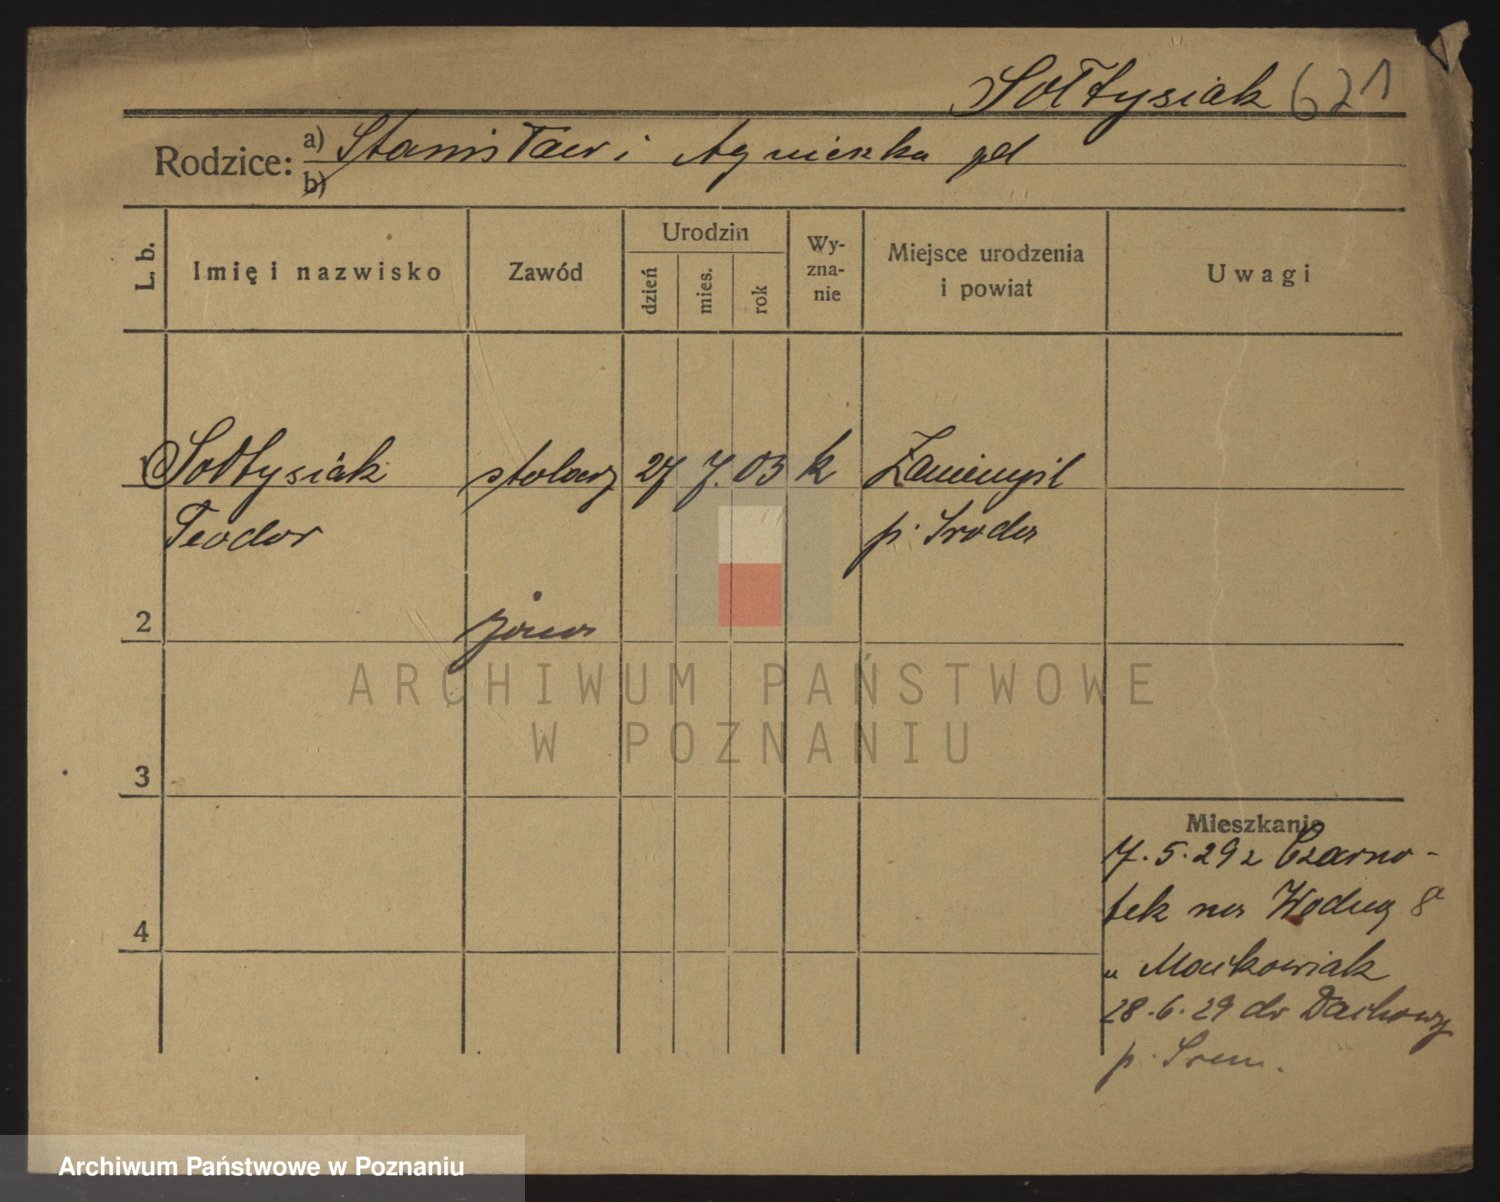 Sołtysiak 621
Rodzice: a) Stanisław i Agnieszka pd
b)
L. b.
Imię i nazwisko
Zawód
Urodzin
dzień
mies.
rok
Wy-
zna-
nie
Miejsce urodzenia
i powiat
Uwagi
1 Sołtysiak stolarz 27 7. 03 k Zaniemyśl
Teodor p. Środa
2
żona
3
Mieszkanie
7.5.29 z Czarno-
tek na Wodną 8
4
u Maćkowiak
28.6.29 do Dachowy
p. Śrem.
ARCHIWUM PAŃSTWOWE
W POZNANIU
Archiwum Państwowe w Poznaniu